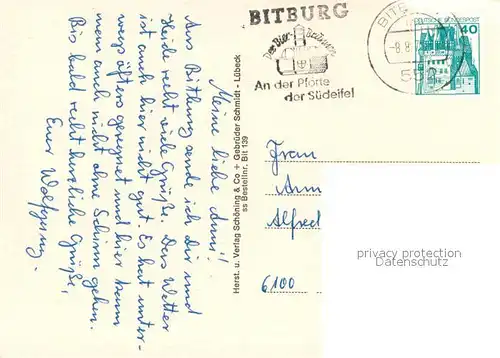 BITBURG
Der Bier-Brauerei
An der Pforte
der Südeifel
BITB
-8.8.
552
DEUTSCHE BUNDESPOST
40
Meine liebe Anni!
Aus Bitburg sende ich dir und
Heide recht viele Grüße. Das Wetter
ist auch hier nicht gut. Es hat unter-
wegs öfters geregnet und hier kann
man auch nicht ohne Schirm gehen.
Bis bald recht herzliche Grüße,
Euer Wolfgang.
Herst. u. Verlag Schöning & Co + Gebrüder Schmidt - Lübeck
ss Bestellnr. Bit 139
Frau
Alfred
6100
privacy protection
Datenschutz